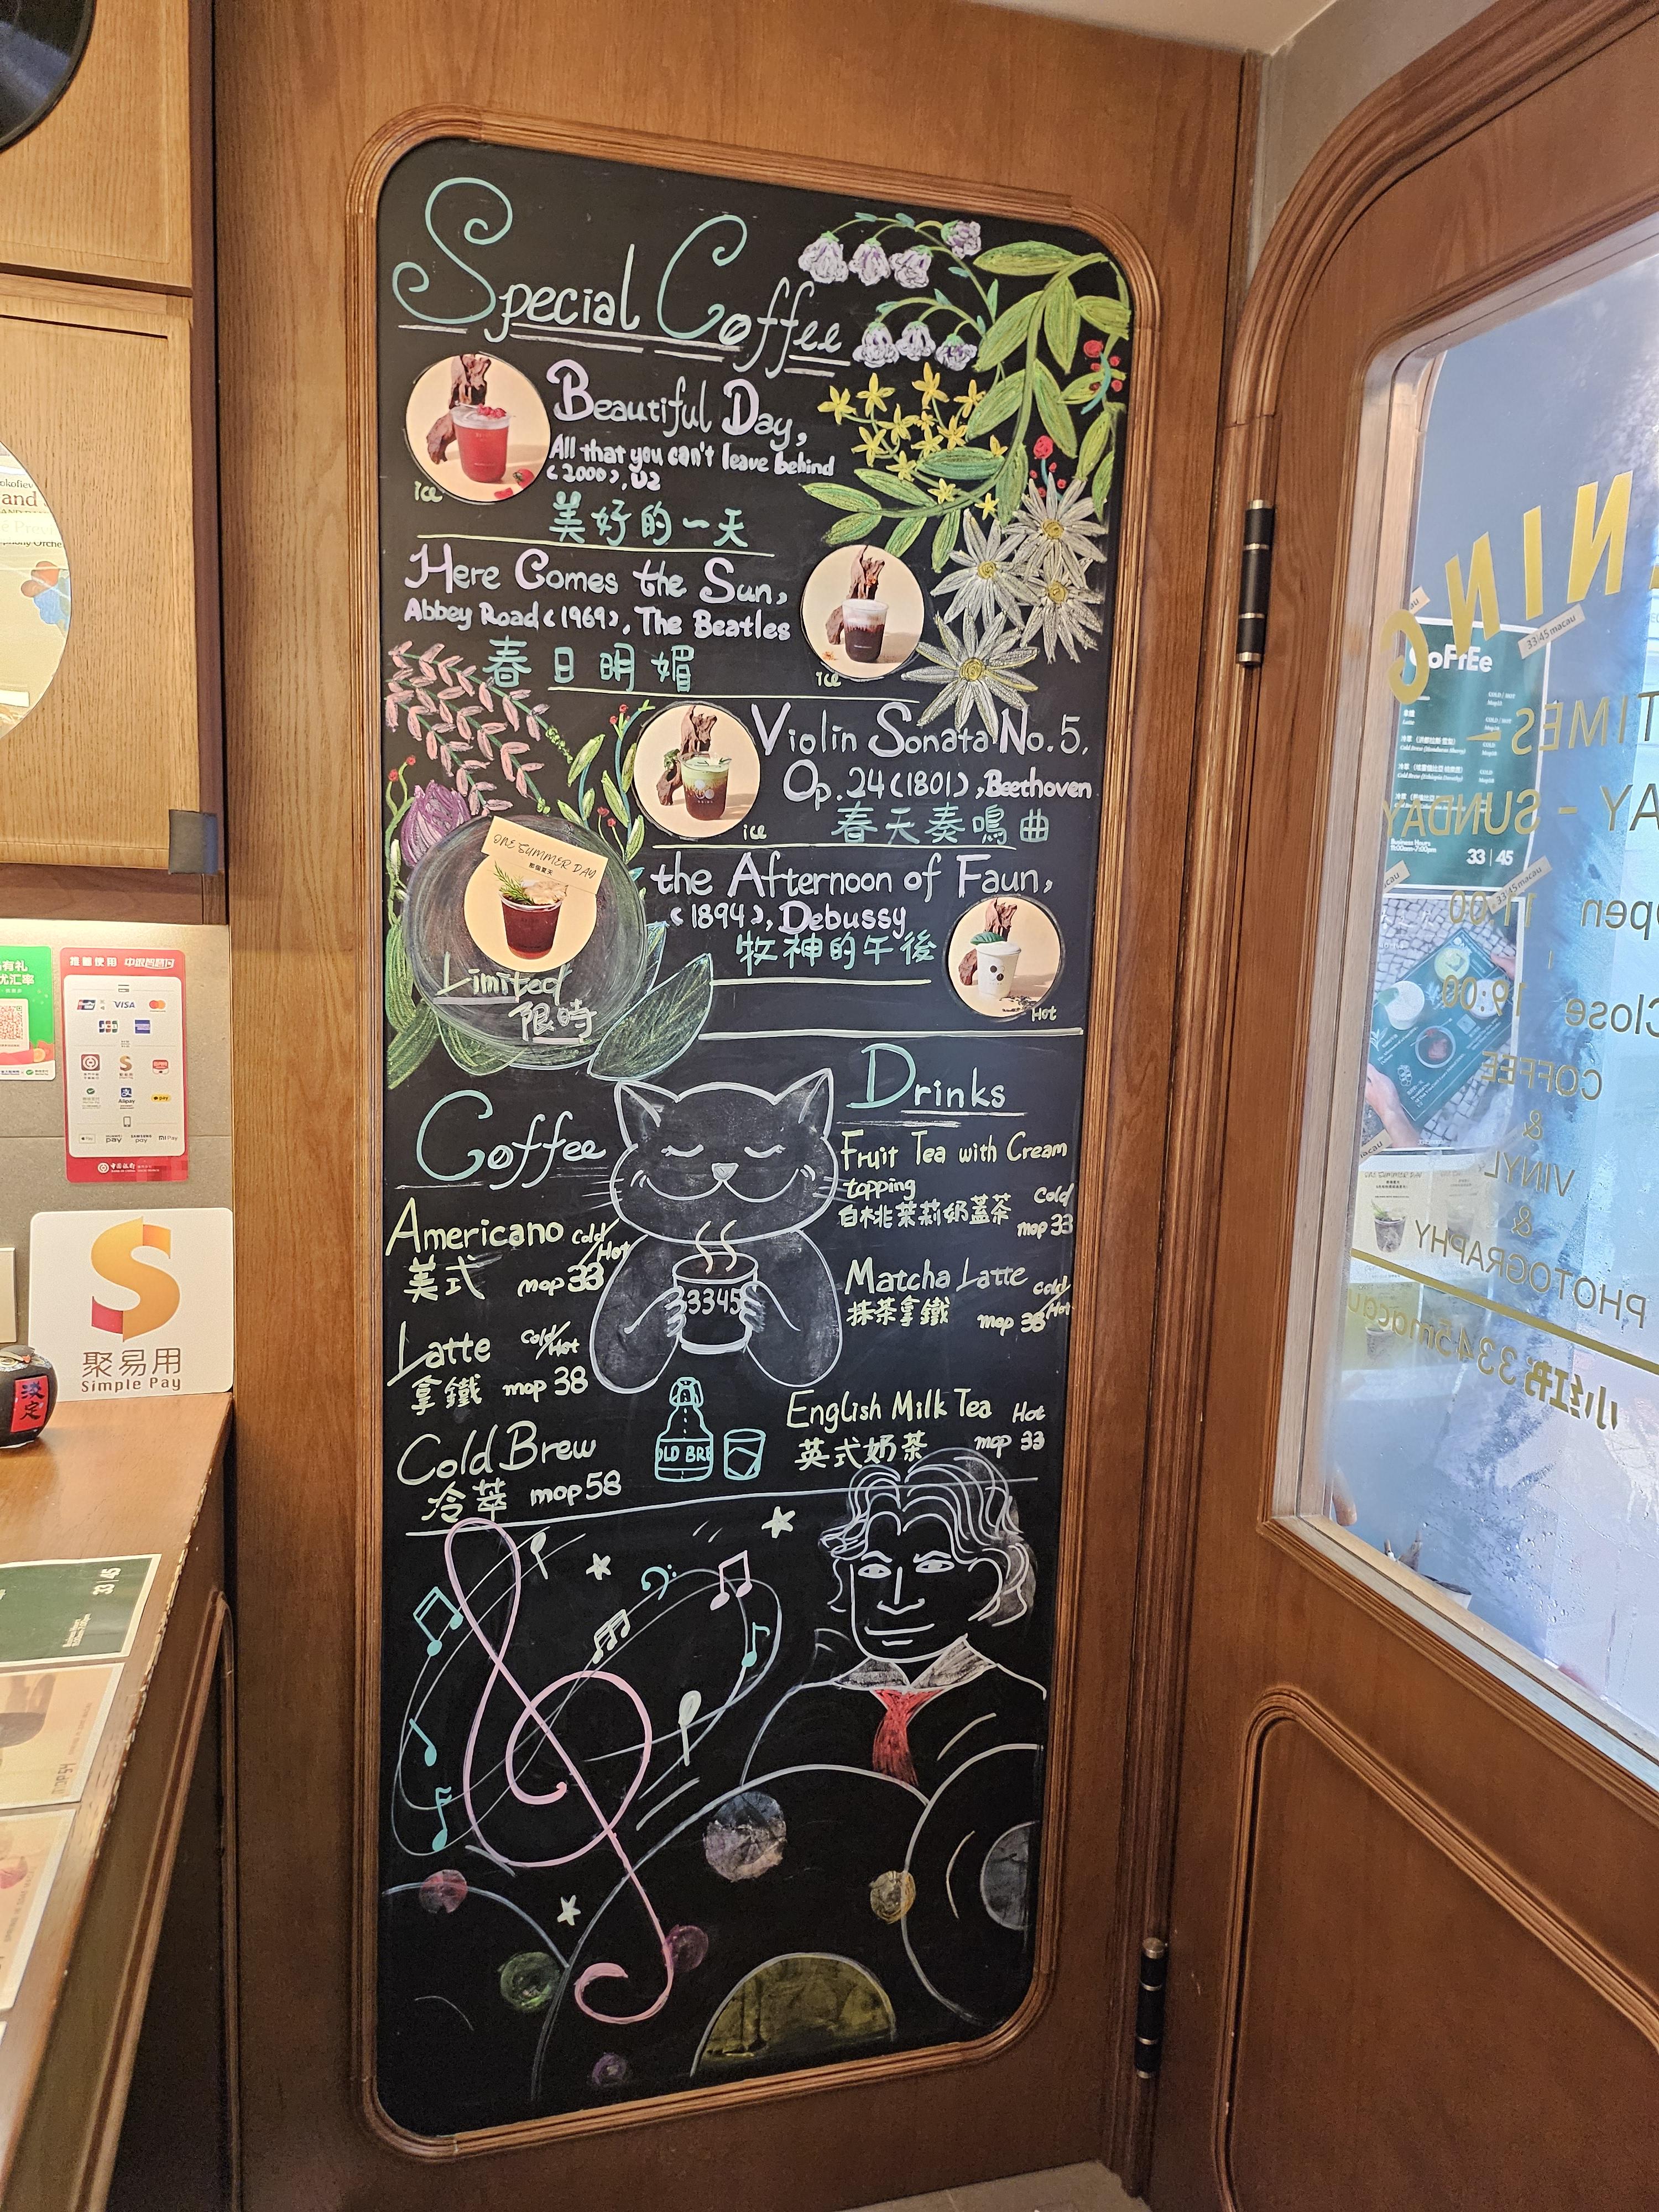 Special Coffee
Beautiful Day,
All that you can't leave behind
<2000>, U2
ice
美好的一天
Here Comes the Sun,
Abbey Road <1969>, The Beatles
春日明媚
ice
Violin Sonata No.5,
Op.24 (1801), Beethoven
春天奏鳴曲
ice
ONE SUMMER DAY
那個夏天
Limited
限時
the Afternoon of Faun,
<1894>, Debussy
牧神的午後
Hot
Coffee
Americano Cold/Hot
美式 mop 33
Latte Cold/Hot
拿鐵 mop 38
Cold Brew
冷萃 mop 58
3345
COLD BRE
Drinks
Fruit Tea with Cream
topping Cold
白桃茉莉奶蓋茶 mop 33
Matcha Latte Cold/Hot
抹茶拿鐵 mop 38
English Milk Tea Hot
英式奶茶 mop 33
VISA
JCB
Alipay
聚易用
Simple Pay
淡定
33 45
NING
TIMES
AY - SUNDAY
Open 11:00
Close 19:00
COFFEE
&
VINYL
&
PHOTOGRAPHY
小红书 3345macau
33.45macau
CoFFEe
Business Hours
11:00am-7:00pm
33 45